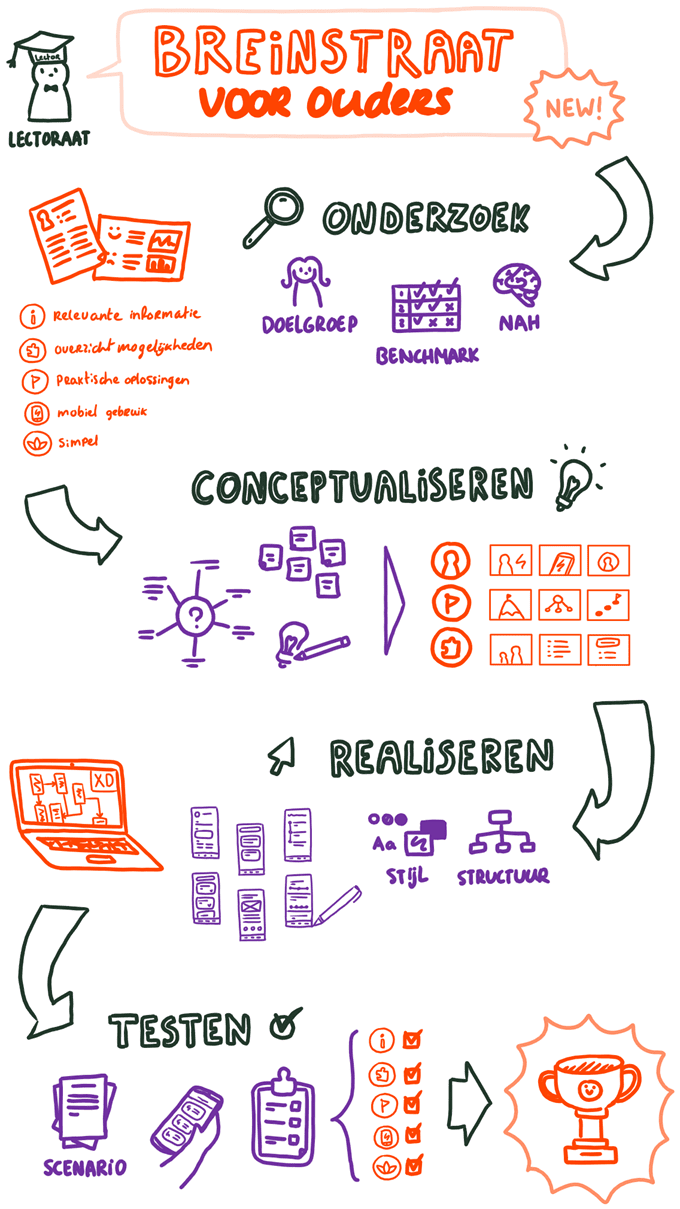 Lector
LECTORAAT
BREINSTRAAT
VOOR OUDERS
NEW!
ONDERZOEK
DOELGROEP
BENCHMARK
NAH
Relevante informatie
overzicht mogelijkheden
praktische oplossingen
mobiel gebruik
simpel
CONCEPTUALISEREN
?
REALISEREN
XD
Aa
STIJL
STRUCTUUR
TESTEN
SCENARIO